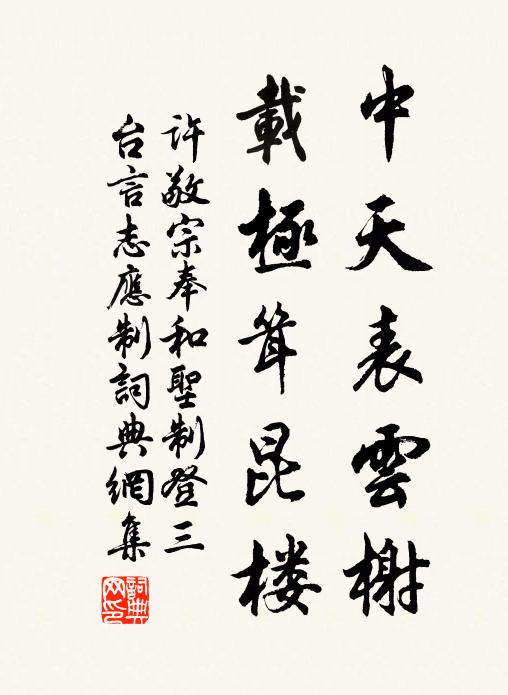 中天表雲榭
載極耸昆楼
许敬宗奉和聖制登三
台言志應制詞典網集